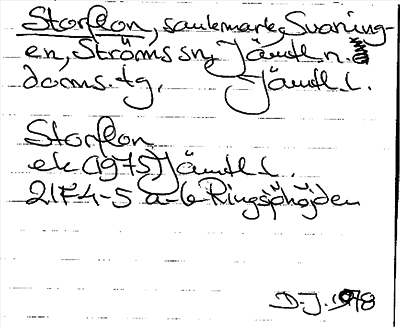 Storflon, sankmark, Svaning-
en, Ströms sn, Jämtl. n.
doms. tg, Jämtl. l.
Storflon
ek (1975) Jämtl. l.
21F4-5 a-b Ringshöjden
D.J. 1978